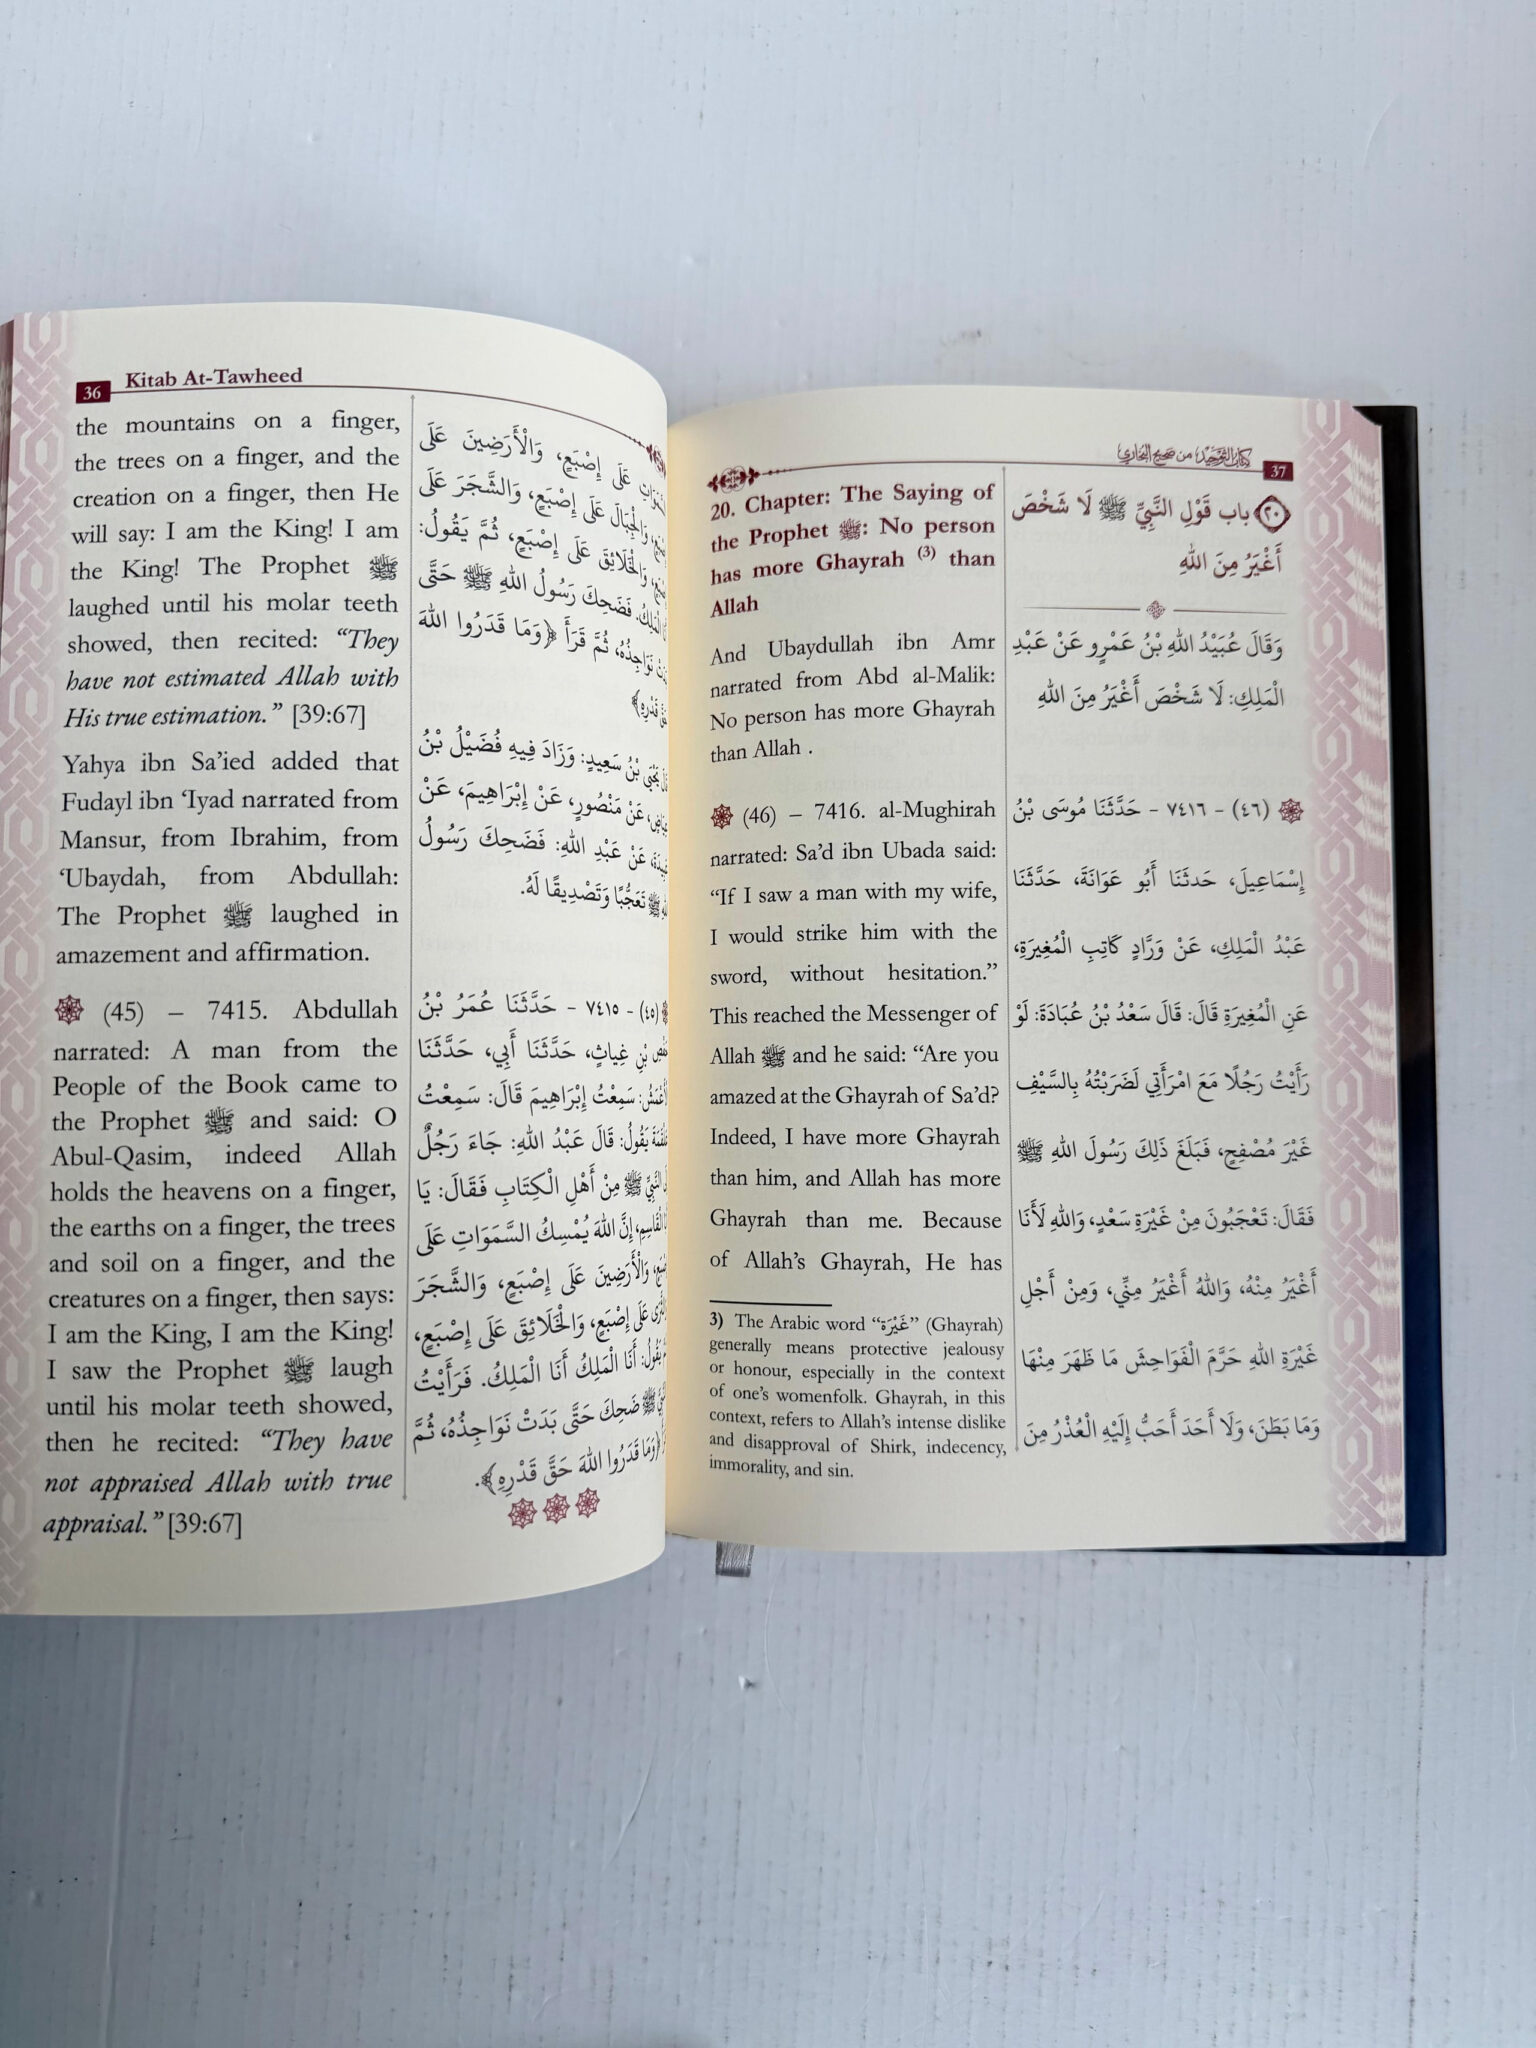 36 Kitab At-Tawheed
the mountains on a finger,
the trees on a finger, and the
creation on a finger, then He
will say: I am the King! I am
the King! The Prophet ﷺ
laughed until his molar teeth
showed, then recited: “They
have not estimated Allah with
His true estimation.” [39:67]
Yahya ibn Sa’ied added that
Fudayl ibn ‘Iyad narrated from
Mansur, from Ibrahim, from
‘Ubaydah, from Abdullah:
The Prophet ﷺ laughed in
amazement and affirmation.
(45) – 7415. Abdullah
narrated: A man from the
People of the Book came to
the Prophet ﷺ and said: O
Abul-Qasim, indeed Allah
holds the heavens on a finger,
the earths on a finger, the trees
and soil on a finger, and the
creatures on a finger, then says:
I am the King, I am the King!
I saw the Prophet ﷺ laugh
until his molar teeth showed,
then he recited: “They have
not appraised Allah with true
appraisal.” [39:67]
عَلَى إِصْبَعٍ، وَالْأَرَضِينَ عَلَى
وَالْجِبَالَ عَلَى إِصْبَعٍ، وَالشَّجَرَ عَلَى
وَالْخَلَائِقَ عَلَى إِصْبَعٍ، ثُمَّ يَقُولُ:
فَضَحِكَ رَسُولُ اللهِ ﷺ حَتَّى
نَوَاجِذُهُ، ثُمَّ قَرَأَ ﴿وَمَا قَدَرُوا اللهَ
قَدْرِهِ﴾
يَحْيَى بْنُ سَعِيدٍ: وَزَادَ فِيهِ فُضَيْلُ بْنُ
عَنْ مَنْصُورٍ، عَنْ إِبْرَاهِيمَ، عَنْ
عَنْ عَبْدِ اللهِ: فَضَحِكَ رَسُولُ
ﷺ تَعَجُّبًا وَتَصْدِيقًا لَهُ.
(٤٥) - ٧٤١٥ - حَدَّثَنَا عُمَرُ بْنُ
بْنِ غِيَاثٍ، حَدَّثَنَا أَبِي، حَدَّثَنَا
سَمِعْتُ إِبْرَاهِيمَ قَالَ: سَمِعْتُ
يَقُولُ: قَالَ عَبْدُ اللهِ: جَاءَ رَجُلٌ
النَّبِيِّ ﷺ مِنْ أَهْلِ الْكِتَابِ فَقَالَ: يَا
الْقَاسِمِ، إِنَّ اللهَ يُمْسِكُ السَّمَوَاتِ عَلَى
وَالْأَرَضِينَ عَلَى إِصْبَعٍ، وَالشَّجَرَ
عَلَى إِصْبَعٍ، وَالْخَلَائِقَ عَلَى إِصْبَعٍ،
يَقُولُ: أَنَا الْمَلِكُ أَنَا الْمَلِكُ. فَرَأَيْتُ
ﷺ ضَحِكَ حَتَّى بَدَتْ نَوَاجِذُهُ، ثُمَّ
﴿وَمَا قَدَرُوا اللهَ حَقَّ قَدْرِهِ﴾.
كتاب التوحيد من صحيح البخاري 37
20. Chapter: The Saying of
the Prophet ﷺ: No person
has more Ghayrah (3) than
Allah
And Ubaydullah ibn Amr
narrated from Abd al-Malik:
No person has more Ghayrah
than Allah .
(46) – 7416. al-Mughirah
narrated: Sa’d ibn Ubada said:
“If I saw a man with my wife,
I would strike him with the
sword, without hesitation.”
This reached the Messenger of
Allah ﷺ and he said: “Are you
amazed at the Ghayrah of Sa’d?
Indeed, I have more Ghayrah
than him, and Allah has more
Ghayrah than me. Because
of Allah’s Ghayrah, He has
3) The Arabic word “غَيْرَة” (Ghayrah)
generally means protective jealousy
or honour, especially in the context
of one’s womenfolk. Ghayrah, in this
context, refers to Allah’s intense dislike
and disapproval of Shirk, indecency,
immorality, and sin.
٢٠ باب قَوْلِ النَّبِيِّ ﷺ لَا شَخْصَ
أَغْيَرُ مِنَ اللهِ
وَقَالَ عُبَيْدُ اللهِ بْنُ عَمْرٍو عَنْ عَبْدِ
الْمَلِكِ: لَا شَخْصَ أَغْيَرُ مِنَ اللهِ
(٤٦) - ٧٤١٦ - حَدَّثَنَا مُوسَى بْنُ
إِسْمَاعِيلَ، حَدثَنَا أَبُو عَوَانَةَ، حَدَّثَنَا
عَبْدُ الْمَلِكِ، عَنْ وَرَّادٍ كَاتِبِ الْمُغِيرَةِ،
عَنِ الْمُغِيرَةِ قَالَ: قَالَ سَعْدُ بْنُ عُبَادَةَ: لَوْ
رَأَيْتُ رَجُلًا مَعَ امْرَأَتِي لَضَرَبْتُهُ بِالسَّيْفِ
غَيْرَ مُصْفِحٍ، فَبَلَغَ ذَلِكَ رَسُولَ اللهِ ﷺ
فَقَالَ: تَعْجَبُونَ مِنْ غَيْرَةِ سَعْدٍ، وَاللهِ لَأَنَا
أَغْيَرُ مِنْهُ، وَاللهُ أَغْيَرُ مِنِّي، وَمِنْ أَجْلِ
غَيْرَةِ اللهِ حَرَّمَ الْفَوَاحِشَ مَا ظَهَرَ مِنْهَا
وَمَا بَطَنَ، وَلَا أَحَدَ أَحَبُّ إِلَيْهِ الْعُذْرُ مِنَ